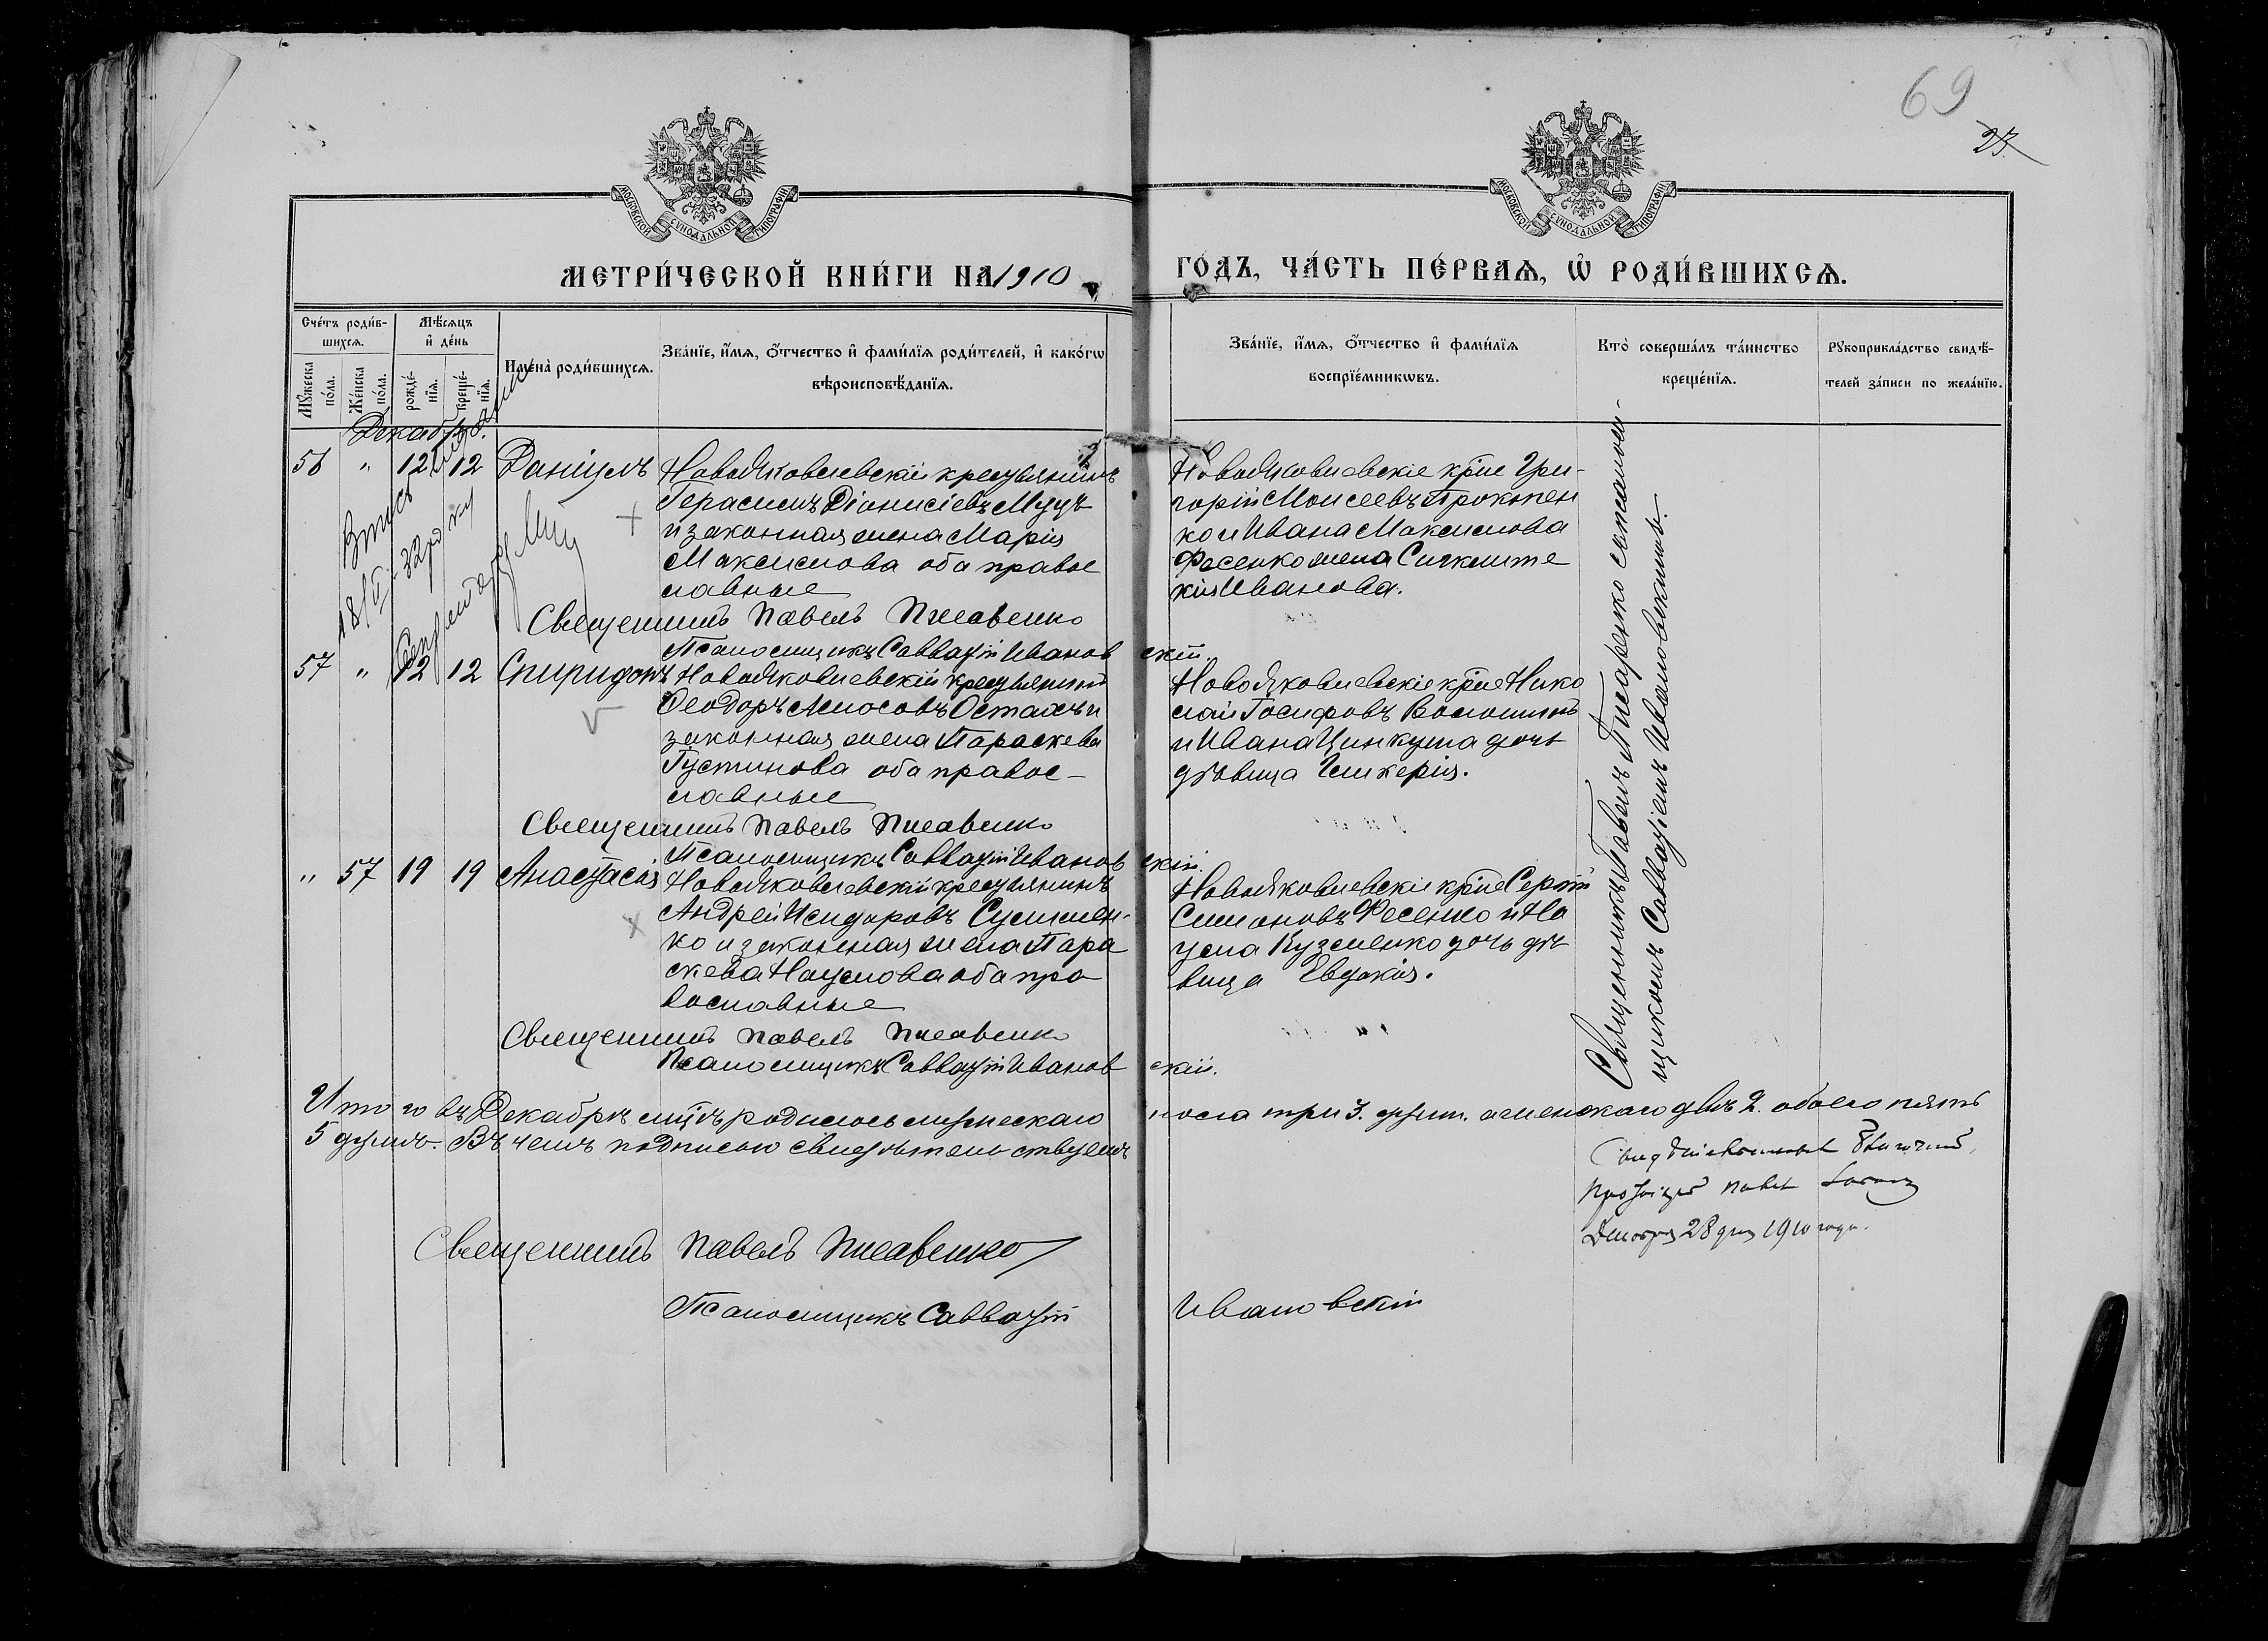 69
27
МОСКОВСКОЙ СѴНОДАЛЬНОЙ ТИПОГРАФІИ
МОСКОВСКОЙ СѴНОДАЛЬНОЙ ТИПОГРАФІИ
МЕТРИ́ЧЕСКОЙ КНИ́ГИ НА 1910
ГО́ДЪ, ЧА́СТЬ ПЕ́РВАѦ, Ѡ҆ РОДИ́ВШИХСѦ.
Сче́тъ роди́в-
шихсѧ.
Мꙋ́жеска
по́ла.
Же́нска
по́ла.
Мѣ́сѧцъ
и҆ де́нь
рожде́-
нїѧ.
креще́-
нїѧ.
И҆мена̀ роди́вшихсѧ.
Зва́нїе, и҆́мѧ, ѻ҆́тчество и҆ фамⷭ҇и́лїѧ роди́телей, и҆ како́гѡ
вѣроисповѣ́данїѧ.
Зва́нїе, и҆́мѧ, ѻ҆́тчество и҆ фами́лїѧ
воспрїе́мникѡвъ.
Кто̀ соверша́лъ та́инство
креще́нїѧ.
Рꙋкоприкла́дство свидѣ́-
телей за́писи по жела́нїю.
Декабрь
56 " 12 12 Даніилъ
НовоЯковлевскій крестьянинъ
Герасимъ Діонисіевъ Муцъ
и законная жена Марія
Максимова оба правос
лавные
Священникъ Павелъ Писаренко
Псаломщикъ Савватій Ивановскій.
НовоЯковлевскіе кр̃не Гри-
горій Моисеевъ Прокопен
ко и Ивана Максимова
Фесенко жена Синклите
кія Иванова.
57 " 12 12 Спиридонъ
НовоЯковлевскій крестьянинъ
Ѳеодоръ Амосовъ Остапъ и
законная жена Параскева
Густинова оба правос-
лавные
Священникъ Павелъ Писаренко
Псаломщикъ Савватій Ивановскій.
НовоЯковлевскіе кр̃не Нико
лай Іосифовъ Волошинъ
и Ивана Цинкуша дочь
дѣвица Гликерія.
" 57 19 19 Анастасія
НовоЯковлевскій крестьянинъ
Андрей Исидоровъ Сушмен-
ко и законная жена Пара
скева Наумова оба пра
вославные
Священникъ Павелъ Писаренко
Псаломщикъ Савватій Ивановскій.
НовоЯковлевскіе кр̃не Сергій
Симоновъ Фесенко и На
ума Кузменко дочь дѣ
вица Евдокія.
Священникъ Павелъ Писаренко съ псалом-
щикомъ Савватіемъ Ивановскимъ.
Итого въ Декабрѣ мцѣ родилось мужескаго пола три 3. а женскаго двѣ 2. обоего пять
5 душъ. Въ чемъ подписью свидѣтельствуемъ
Священникъ Павелъ Писаренко
Псаломщикъ Савватій Ивановскій
Павел
Декабря 28 дня 1910 года.